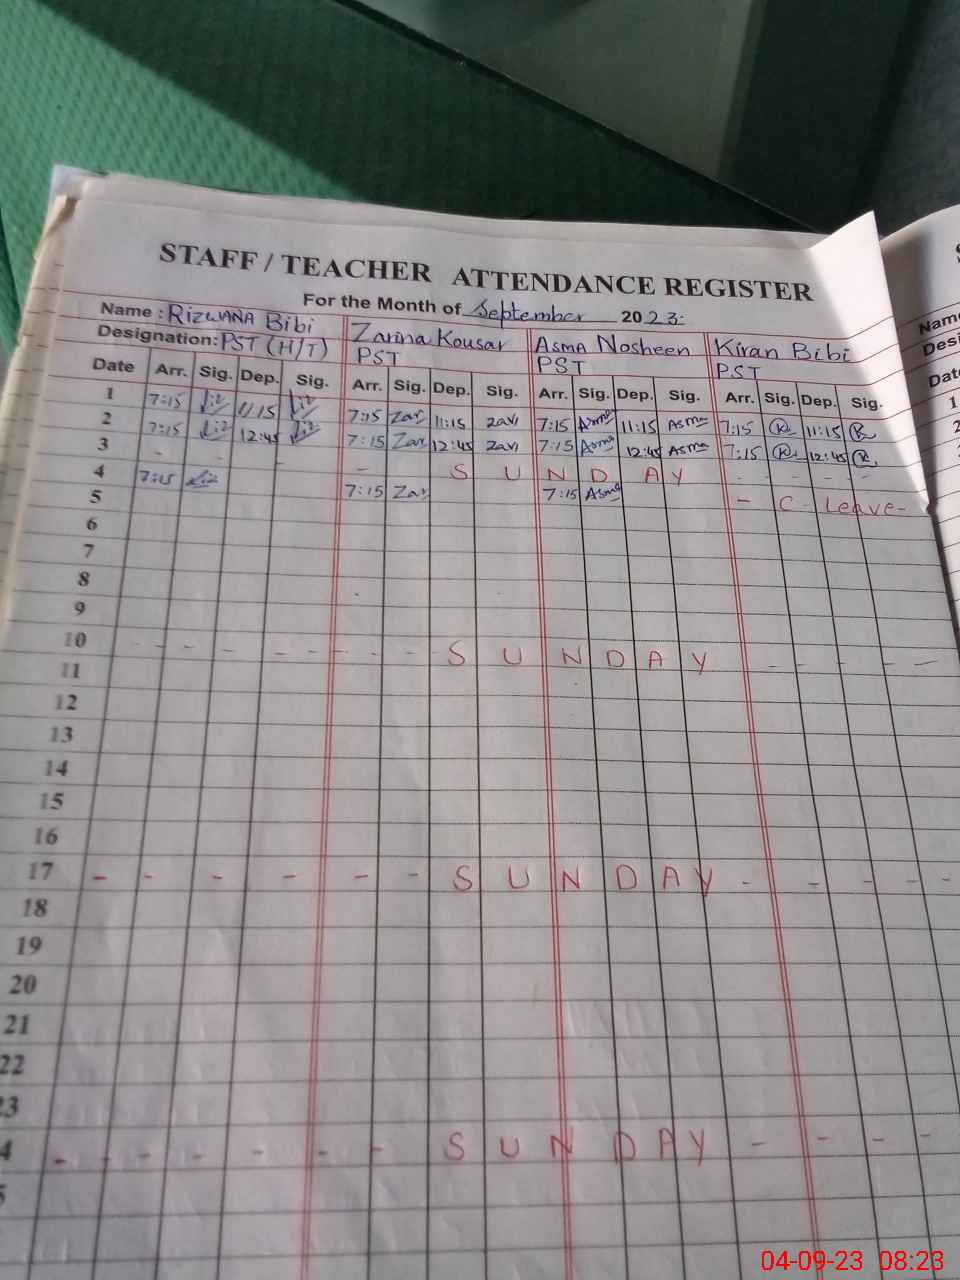 STAFF / TEACHER ATTENDANCE REGISTER
For the Month of September 2023
Name : RIZWANA Bibi Zarina Kousar Asma Nosheen Kiran Bibi Name
Designation: PST (H/T) PST PST PST
Date Arr. Sig. Dep. Sig. Arr. Sig. Dep. Sig. Arr. Sig. Dep. Sig. Arr. Sig. Dep. Sig.
1 7:15 11:15 7:15 Zar 11:15 Zari 7:15 Asma 11:15 Asma 7:15 R 11:15 R 1
2 7:15 12:45 7:15 Zar 12:45 Zari 7:15 Asma 12:45 Asma 7:15 R 12:45 R
3 - - - - - S U N D A Y - - - -
4 7:15 7:15 Zar 7:15 Asma - C. Leave -
5
6
7
8
9
10 - - - - - - - - S U N D A Y - - - - -
11
12
13
14
15
16
17 - - - - - - S U N D A Y - - - - -
18
19
20
21
22
23
4 - - - - - - S U N D A Y - - - -
5
04-09-23 08:23